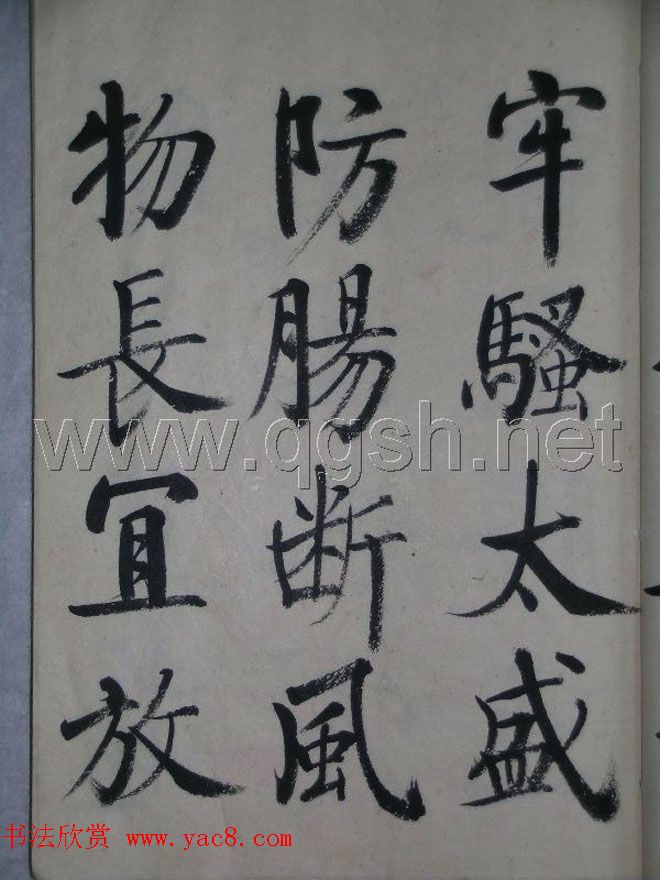 牢騷太盛
防腸断風
物長宜放
www.qgsh.net
书法欣赏 www.yac8.com